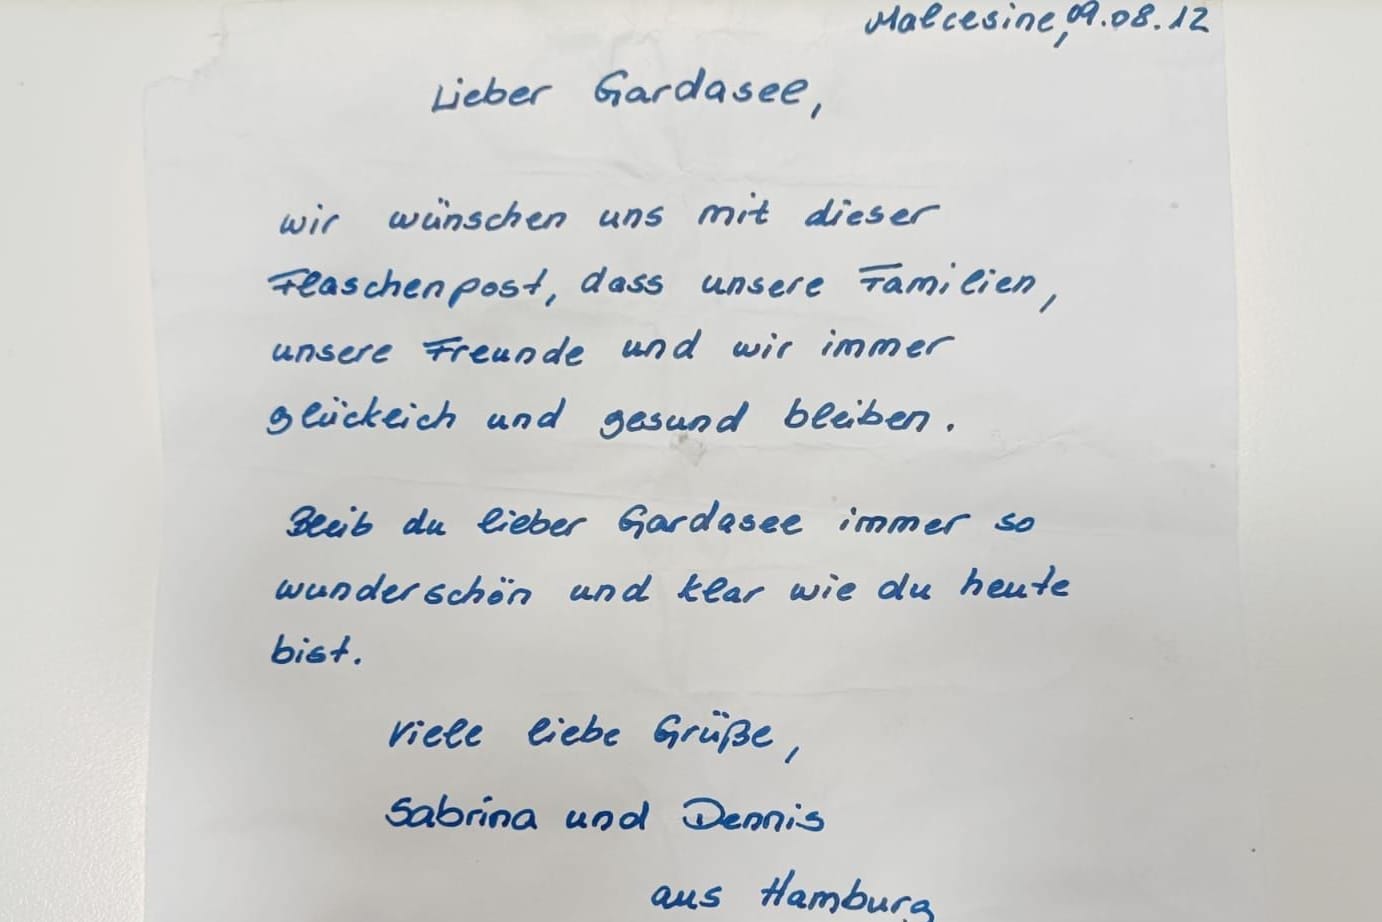 Malcesine, 09.08.12
Lieber Gardasee,
wir wünschen uns mit dieser
Flaschenpost, dass unsere Familien,
unsere Freunde und wir immer
glücklich und gesund bleiben.
Bleib du lieber Gardasee immer so
wunderschön und klar wie du heute
bist.
Viele liebe Grüße,
Sabrina und Dennis
aus Hamburg